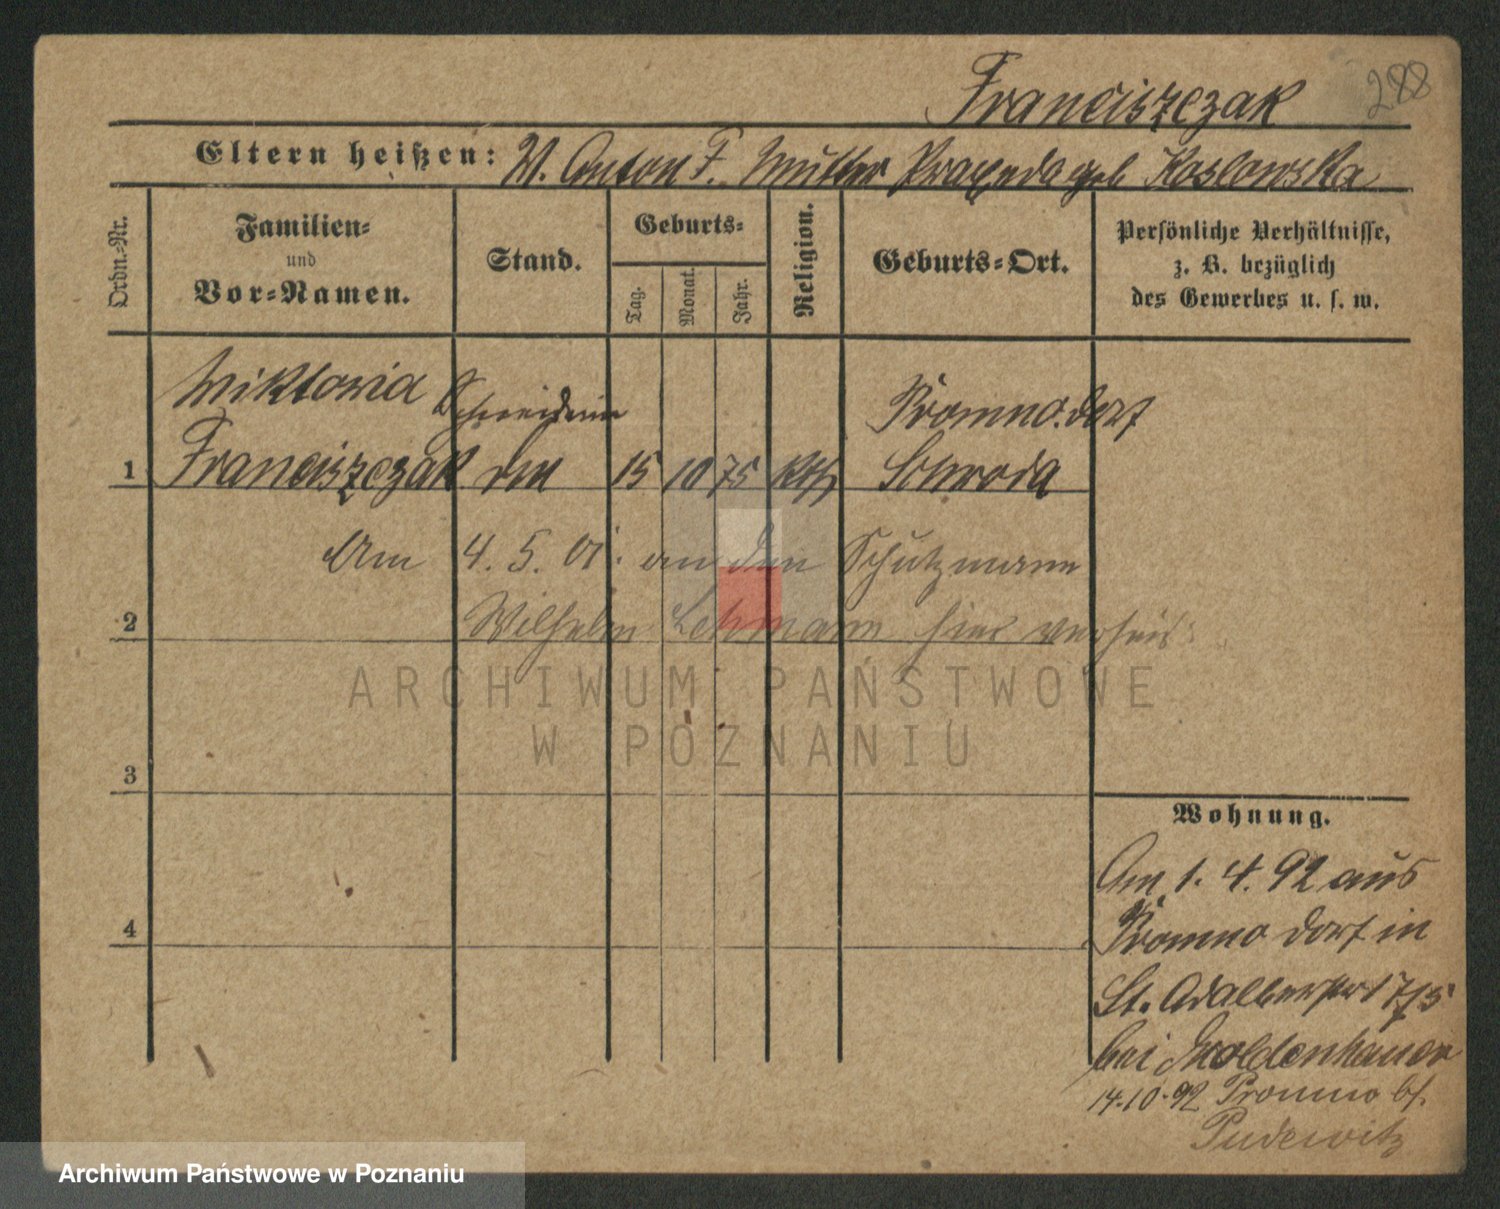 Franciszczak
288
Eltern heißen: V. Anton F. Mutter Praxeda geb Koslowska
Ordn.-Nr.
Familien-
und
Vor-Namen.
Stand.
Geburts-
Tag.
Monat.
Jahr.
Religion.
Geburts-Ort.
Persönliche Verhältnisse,
z. B. bezüglich
des Gewerbes u. s. w.
Wiktoria Schneiderin Promno.dorf
1 Franciszczak 15 10 75 kth Schroda
Am 4. 5. 01. an den Schutzmann
2 Wilhelm Lehmann hier verheir:
ARCHIWUM PAŃSTWOWE
W POZNANIU
3
4
Wohnung.
Am 1. 4. 92 aus
Promno dorf in
St. Adalbertstr
bei Moldenhauer
14.10.92 Promno bf.
Pudewitz
Archiwum Państwowe w Poznaniu